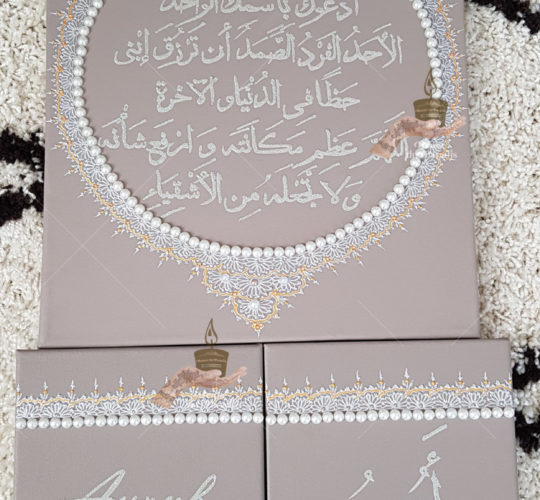 أدعوك باسمك الواحد
الأحد الفرد الصمد أن ترزق إبني
حظا في الدنيا و الآخرة
عظم مكانته و ارفع شأنه
ولا تجعله من الأشقياء